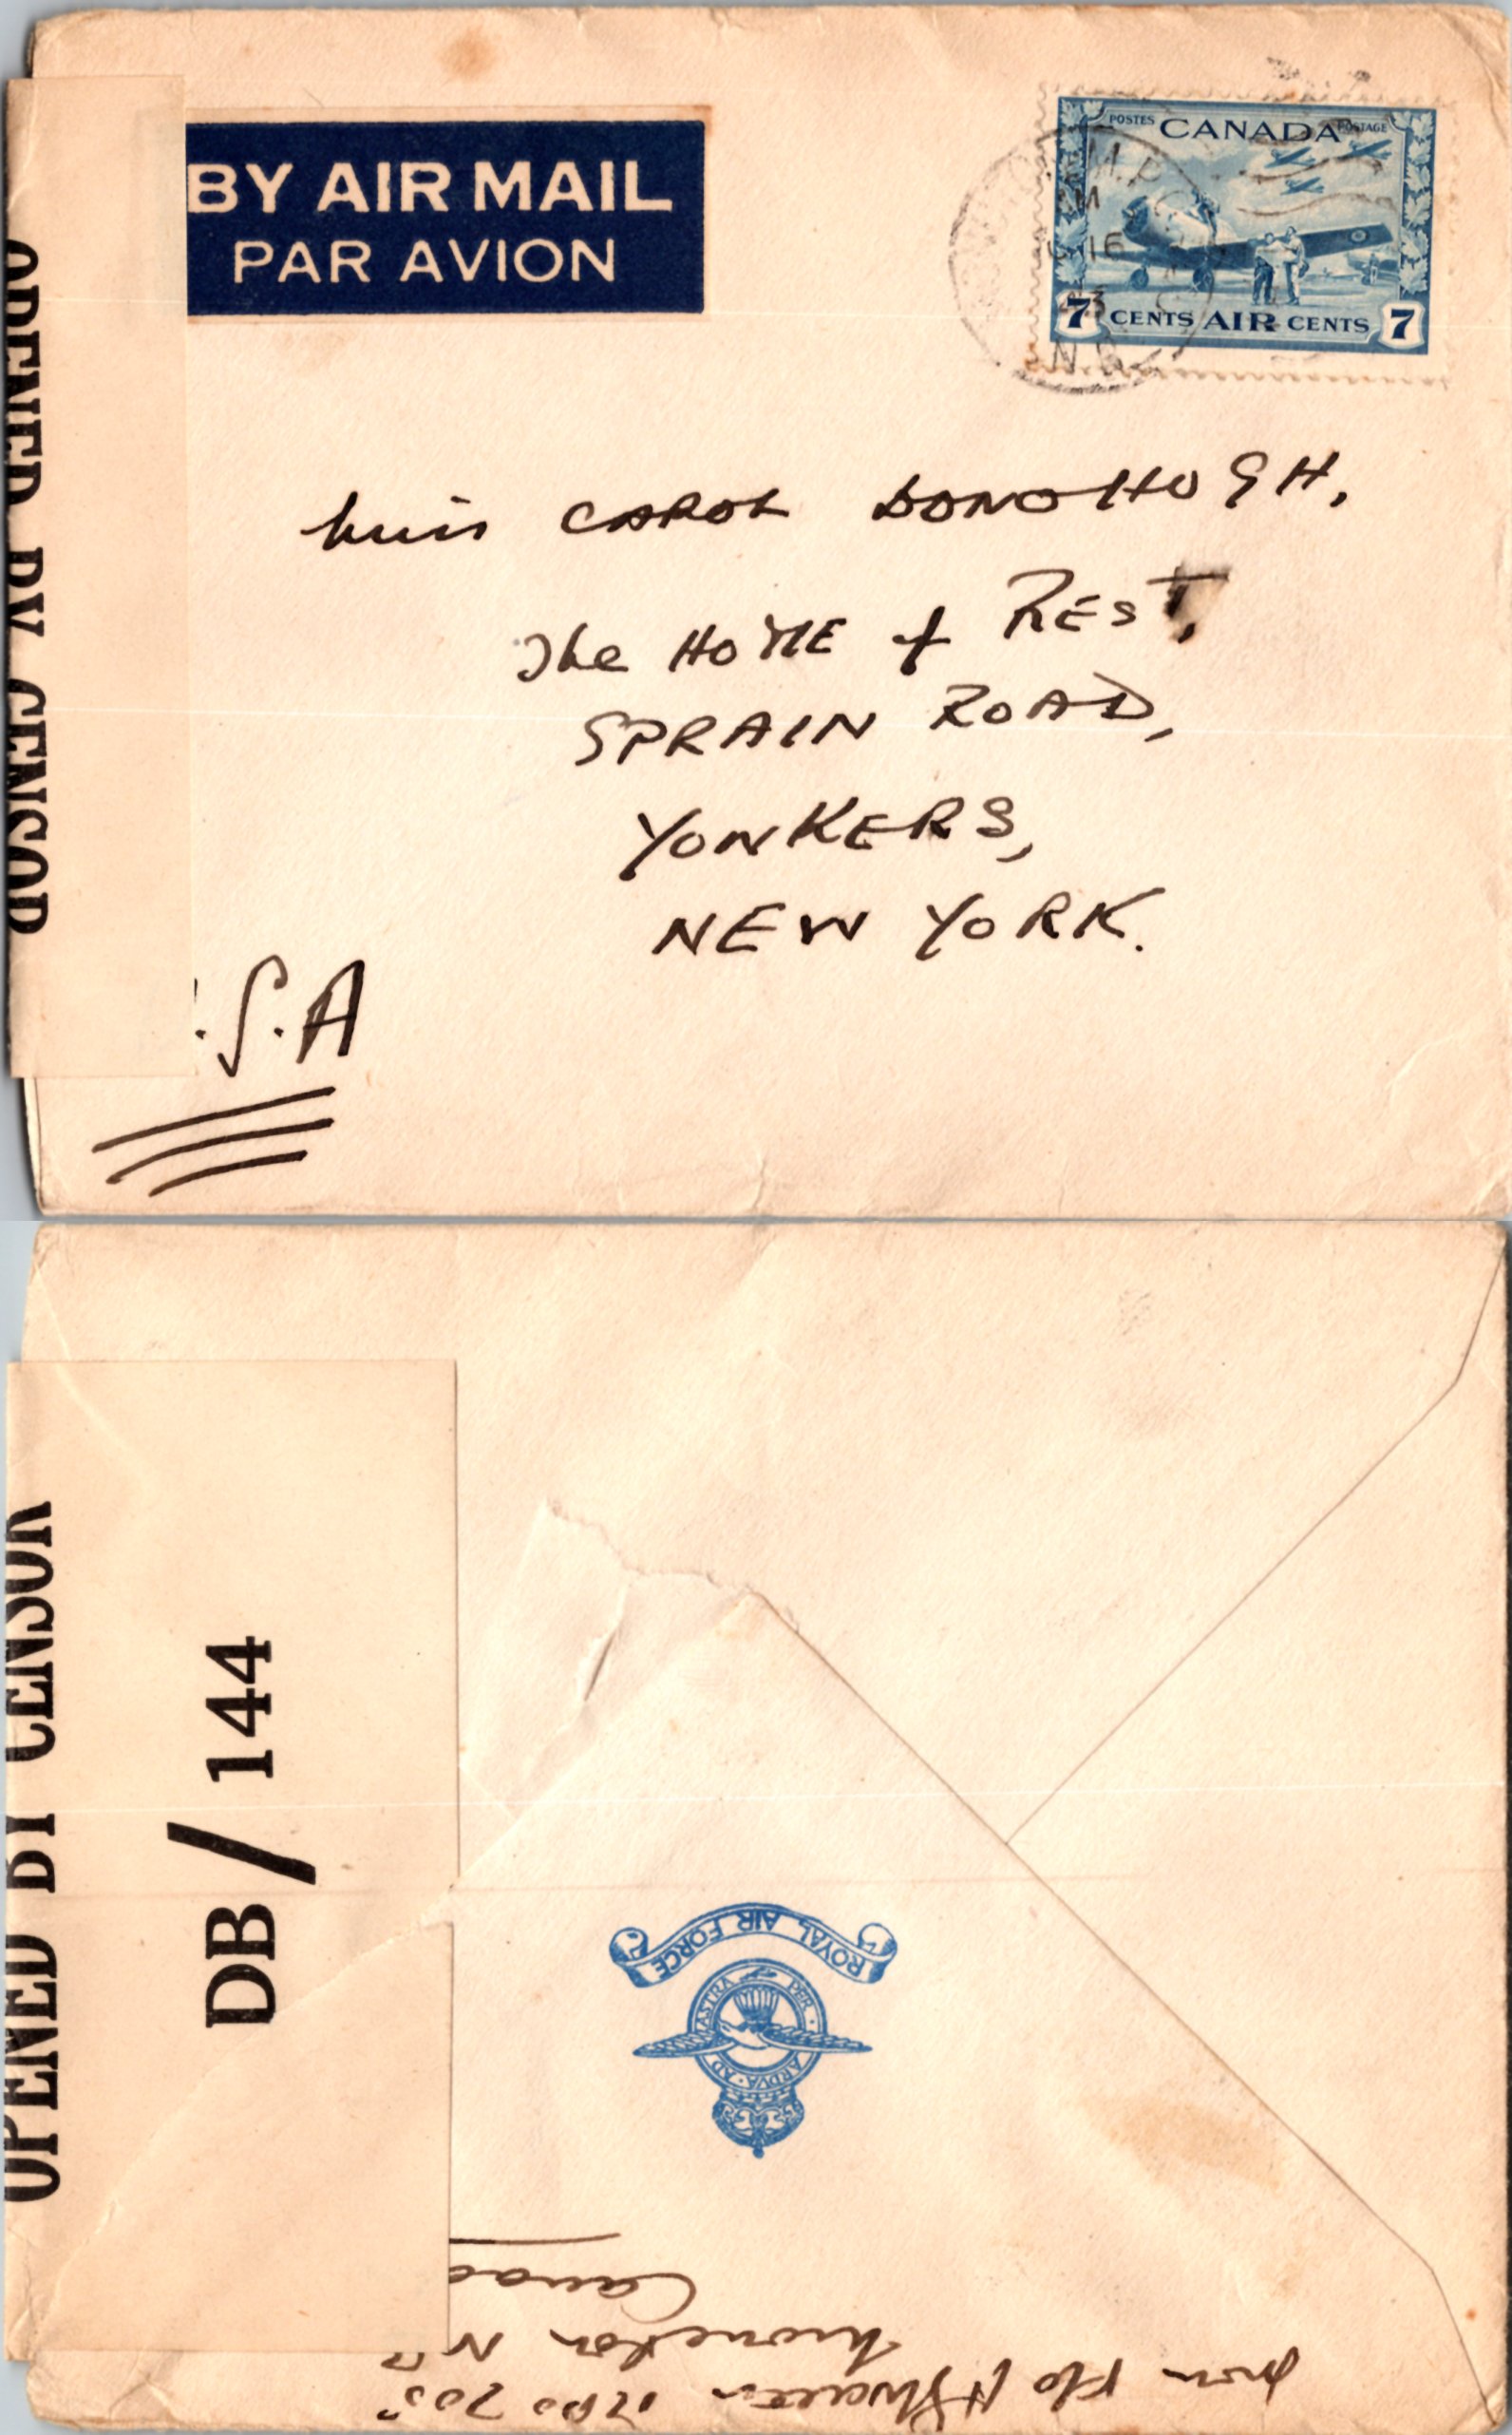 OPENED BY CENSOR
BY AIR MAIL
PAR AVION
POSTES CANADA POSTAGE
7 CENTS AIR CENTS 7
M.P.O.
16
43
N.B.
Miss CAROL DONOHUGH,
The HOME of REST,
SPRAIN ROAD,
YONKERS,
NEW YORK.
.S.A
OPENED BY CENSOR
DB/144
ROYAL AIR FORCE
PER ARDVA AD ASTRA
from F/O
Moncton N B
Canad